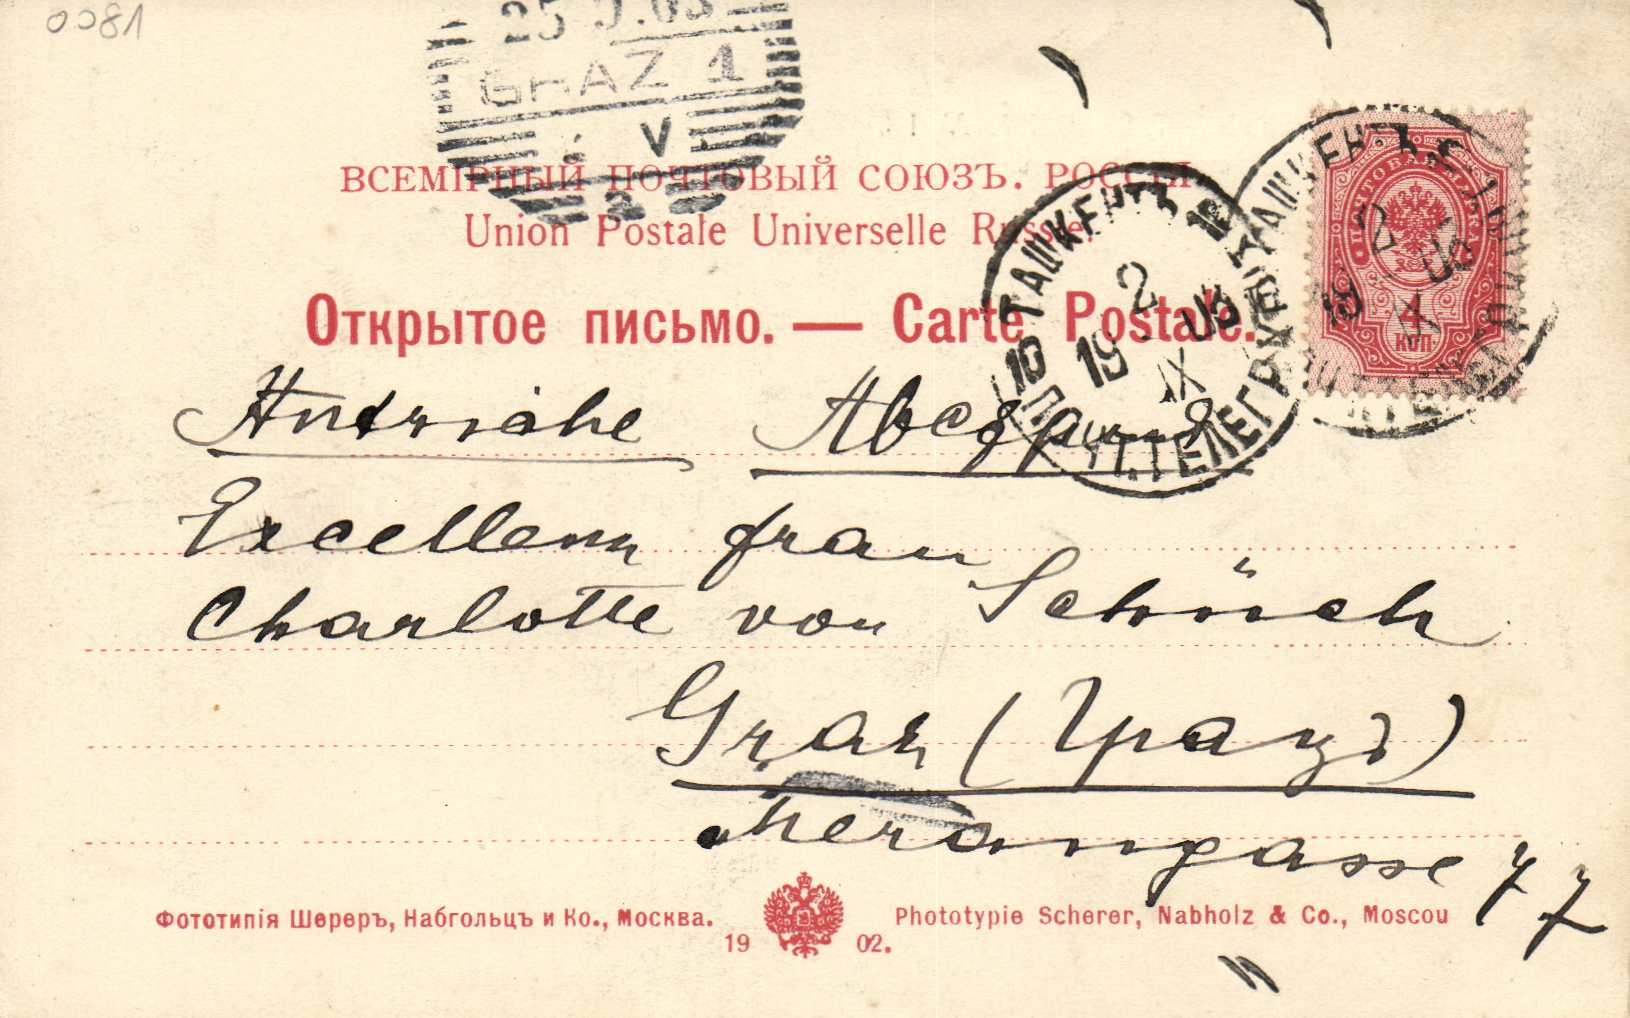 0081
GRAZ 1
V
ВСЕМІРНЫЙ ПОЧТОВЫЙ СОЮЗЪ. РОССІЯ
Union Postale Universelle Russie.
Открытое письмо. — Carte Postale.
ТАШКЕНТЪ
10 ПОЧТ. ТЕЛЕГР.
2 IX
19 03
ТАШКЕНТЪ
2 IX
19 03
4
КОП
Autriche
Excellenz Frau
Charlotte von Schüch
Graz (Грацъ)
Merangasse 77
Фототипія Шереръ, Набгольцъ и Ко., Москва.
Phototypie Scherer, Nabholz & Co., Moscou
19 02.